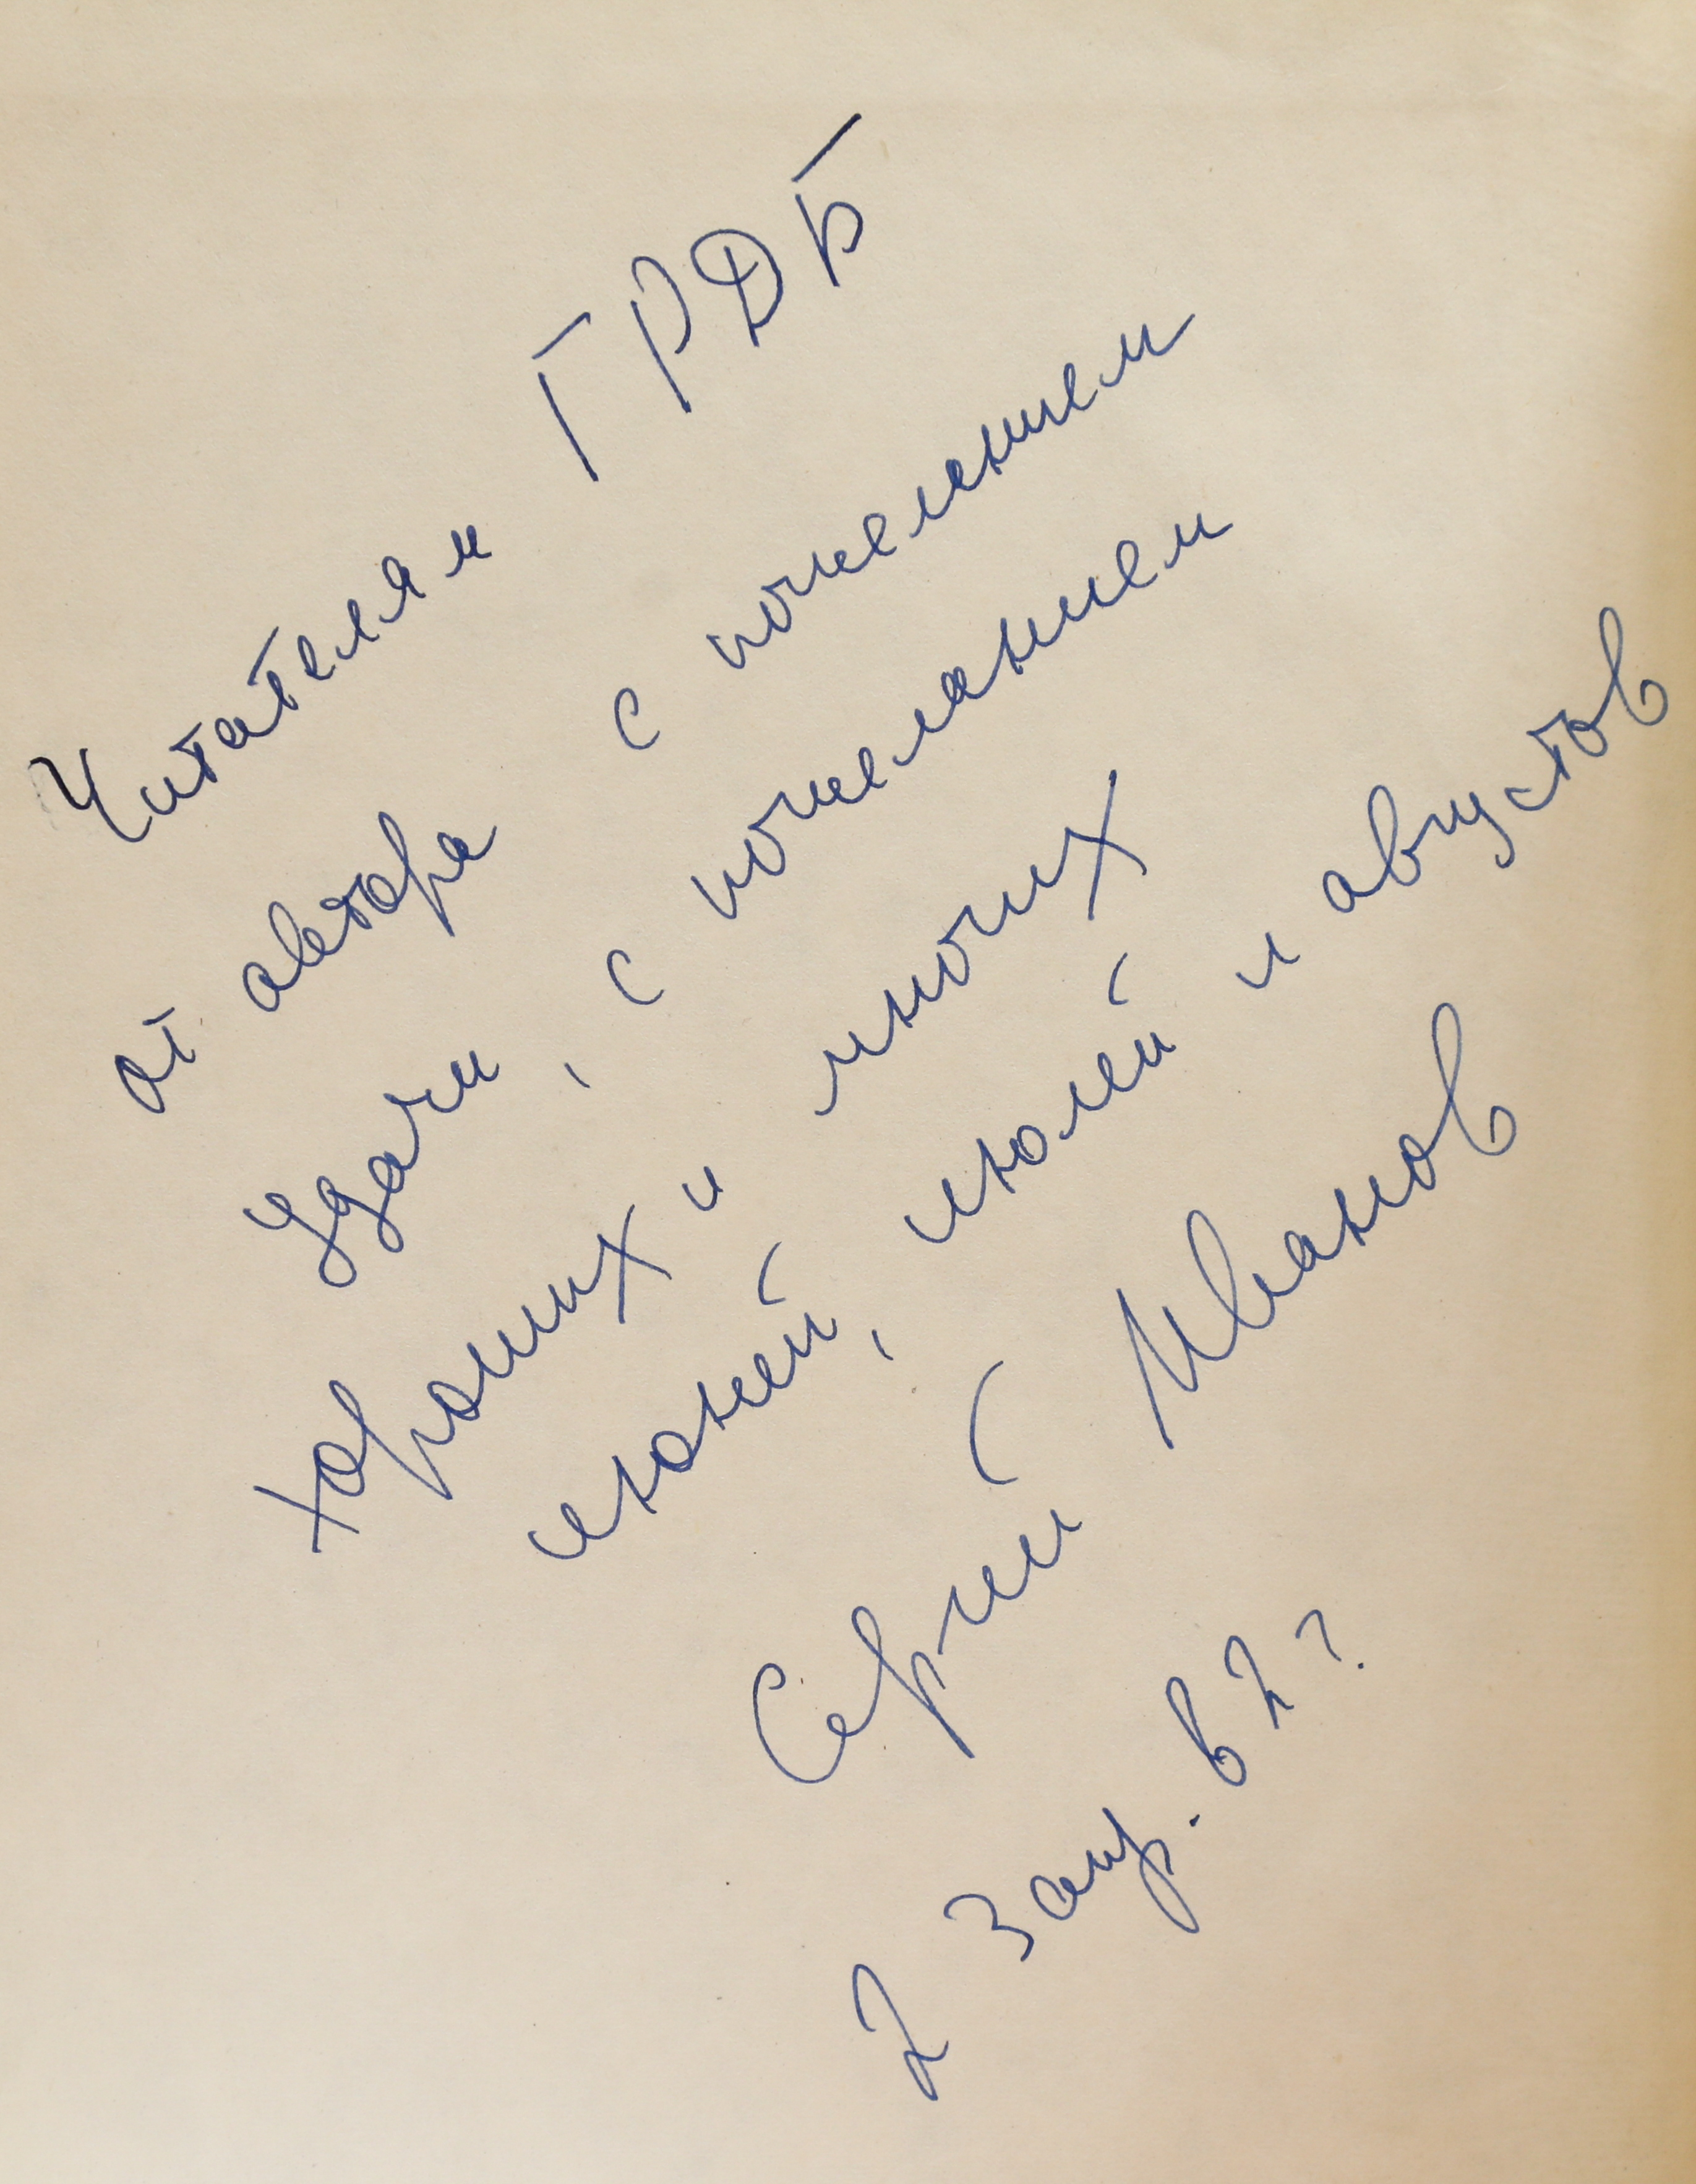 Читателям ГРДБ
от автора с пожеланием
удачи, с пожеланием
хороших и многих
июней, июлей и августов
Сергей Иванов
23 апр. 82 г.